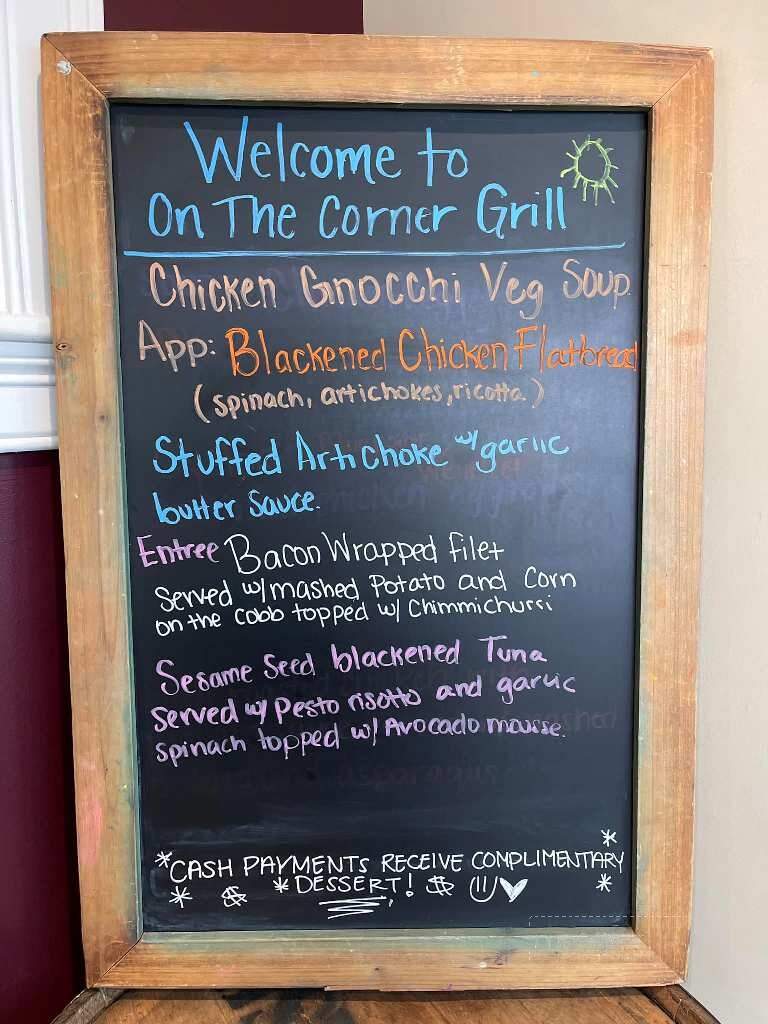 Welcome to
On The Corner Grill
Chicken Gnocchi Veg Soup.
App: Blackened Chicken Flatbread
(spinach, artichokes, ricotta.)
Stuffed Artichoke w/ garlic
butter sauce.
Entree Bacon Wrapped filet
Served w/ mashed Potato and Corn
on the cobb topped w/ Chimmichurri
Sesame Seed blackened Tuna
served w/ Pesto risotto and garlic
spinach topped w/ Avocado mousse.
*CASH PAYMENTS RECEIVE COMPLIMENTARY *
* $ *DESSERT! $ *